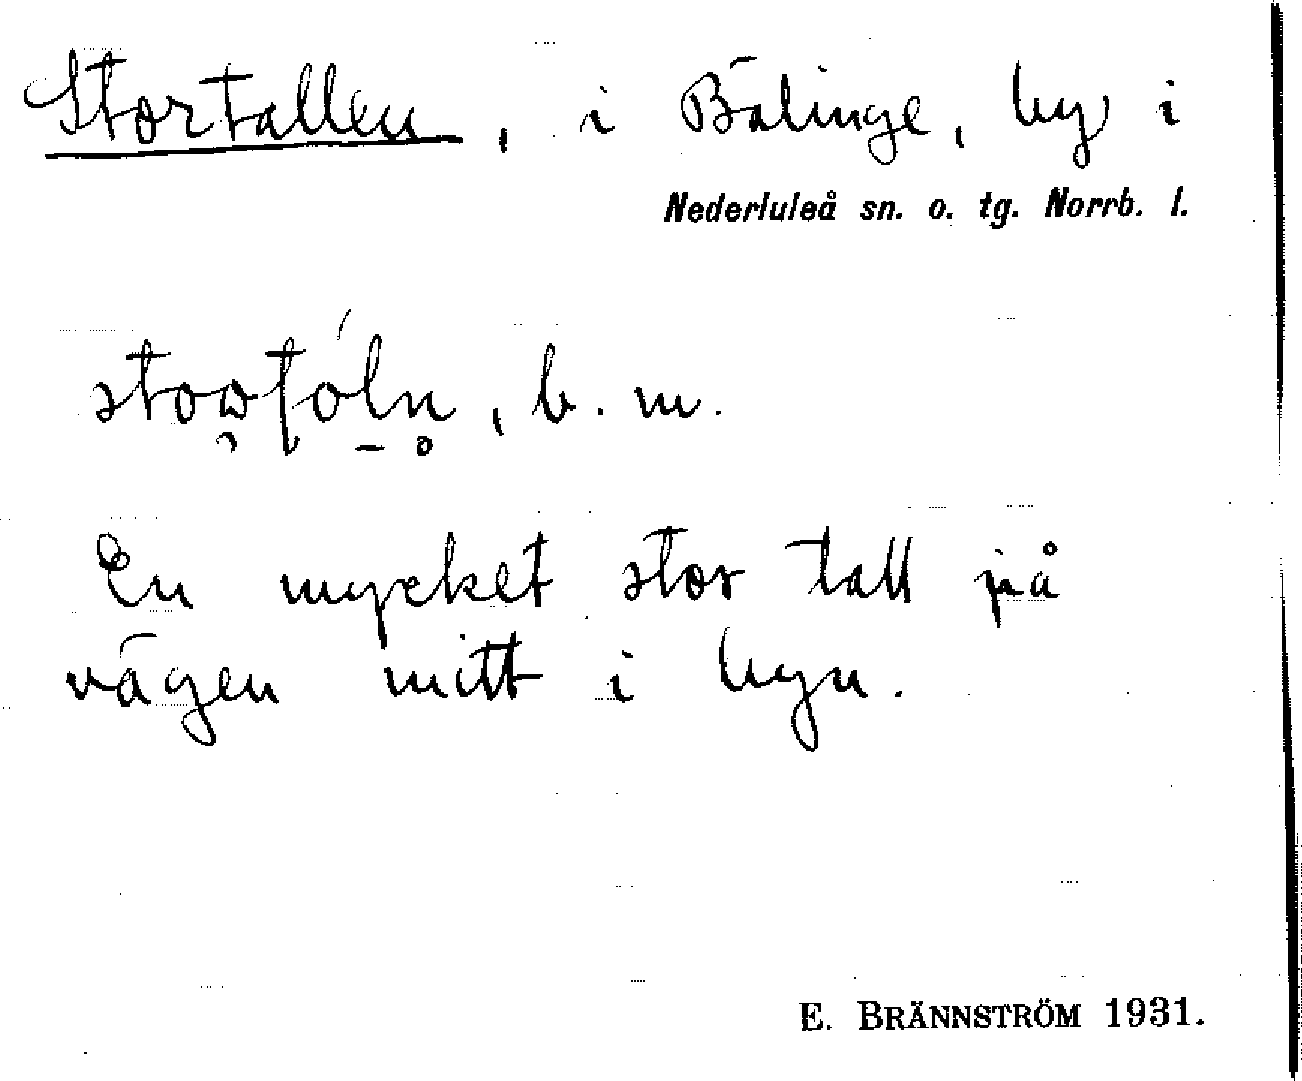 Stortallen, i Bälinge, by i
Nederluleå sn. o. tg. Norrb. l.
b. m.
En mycket stor tall på
vägen mitt i byn.
E. BRÄNNSTRÖM 1931.